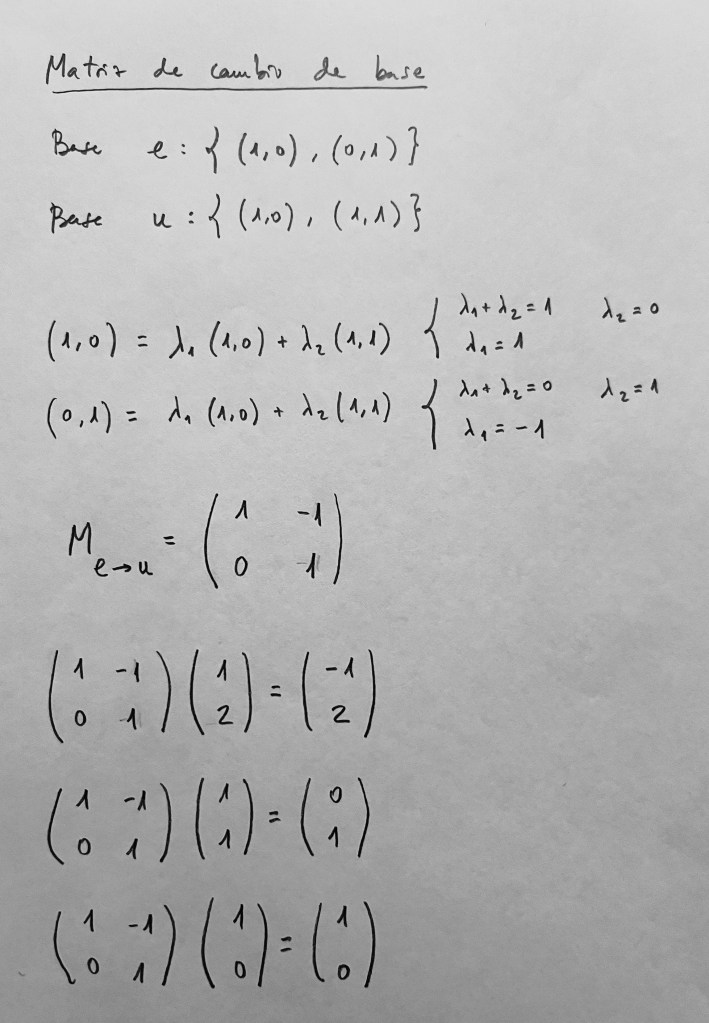 Matriz de cambio de base
Base e : { (1,0) , (0,1) }
Base u : { (1,0) , (1,1) }
(1,0) = λ₁ (1,0) + λ₂ (1,1) { λ₁ + λ₂ = 1 λ₂ = 0
λ₁ = 1
(0,1) = λ₁ (1,0) + λ₂ (1,1) { λ₁ + λ₂ = 0 λ₂ = 1
λ₁ = -1
M e→u = ( 1 -1
0 1 )
( 1 -1 ) ( 1 ) = ( -1 )
( 0 1 ) ( 2 ) = ( 2 )
( 1 -1 ) ( 1 ) = ( 0 )
( 0 1 ) ( 1 ) = ( 1 )
( 1 -1 ) ( 1 ) = ( 1 )
( 0 1 ) ( 0 ) = ( 0 )